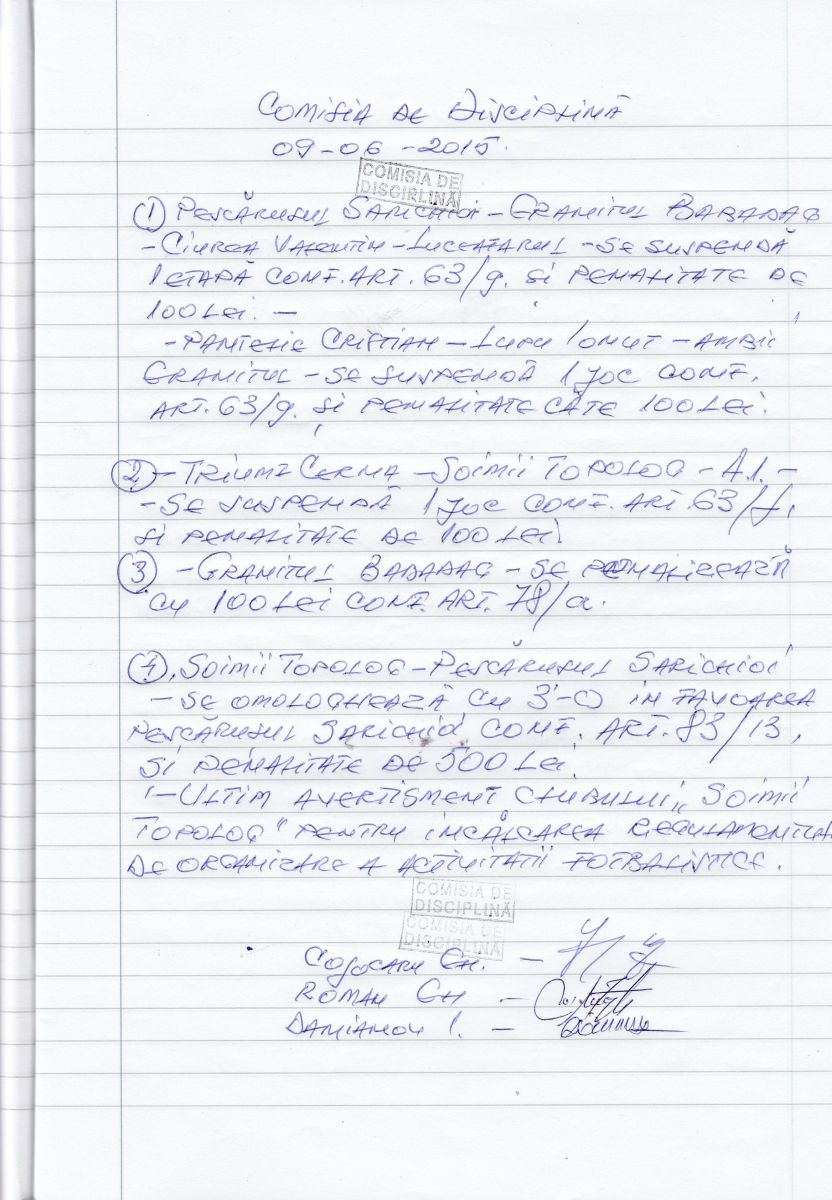 COMISIA DE DISCIPLINĂ
09-06-2015.
COMISIA DE
DISCIPLINĂ
1 PESCĂRUSUL SARICHIOI - GRANITUL BABADAG
- CIUREA VALENTIN - LUCEAFARUL - SE SUSPENDĂ
1 ETAPĂ CONF. ART. 63/g. SI PENALITATE DE
100 LEI. -
- PANTELIE CRISTIAN - LUPU IONUT - AMBII
GRANITUL - SE SUSPENDĂ 1 JOC CONF.
ART. 63/g. și PENALITATE CÂTE 100 LEI.
2 - TRIUMF CERNA - SOIMII TOPOLOG - A.1. -
- SE SUSPENDĂ 1 JOC CONF. ART. 63/f,
SI PENALITATE DE 100 LEI.
3 - GRANITUL BABADAG - SE PENALIZEAZĂ
CU 100 LEI CONF. ART. 78/a.
4. SOIMII TOPOLOG - PESCĂRUSUL SARICHIOI
- SE OMOLOGHEAZĂ CU 3-0 IN FAVOAREA
PESCĂRUSUL SARICHIOI CONF. ART. 83/13,
SI PENALITATE DE 500 LEI.
- ULTIM AVERTISMENT CLUBULUI „SOIMII
TOPOLOG" PENTRU INCĂLCAREA REGULAMENTULUI
DE ORGANIZARE A ACTIVITATII FOTBALISTICE.
COMISIA DE
DISCIPLINĂ
COMISIA DE
DISCIPLINĂ
COJOCARU GH. -
ROMAN GH -
DAMIANOV I. -